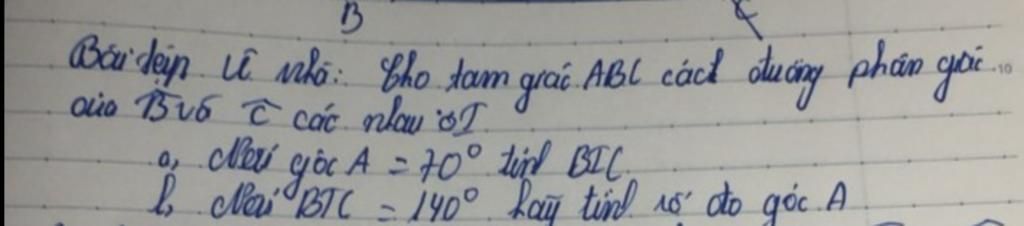 B C
Bài tập về nhà: Cho tam giác ABC các đường phân giác
của B̂ và Ĉ cắt nhau ở I
a, Nếu góc A = 70° tính BIC.
b, Nếu BIC = 140° hãy tính số đo góc A